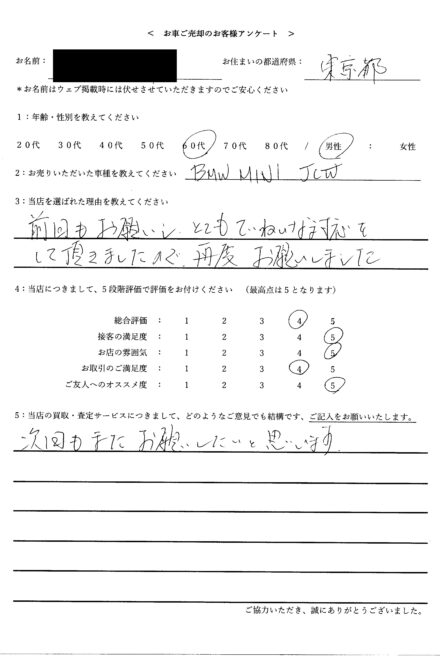 ＜ お車ご売却のお客様アンケート ＞
お名前： お住まいの都道府県： 東京都
＊お名前はウェブ掲載時には伏せさせていただきますのでご安心ください
1：年齢・性別を教えてください
20代 30代 40代 50代 60代 70代 80代 / 男性 ： 女性
2：お売りいただいた車種を教えてください BMW MINI JCW
3：当店を選ばれた理由を教えてください
前回もお願いし、とてもていねいな対応を
して頂きましたので、再度 お願いしました
4：当店につきまして、5段階評価で評価をお付けください （最高点は5となります）
総合評価 ： 1 2 3 4 5
接客の満足度 ： 1 2 3 4 5
お店の雰囲気 ： 1 2 3 4 5
お取引のご満足度 ： 1 2 3 4 5
ご友人へのオススメ度 ： 1 2 3 4 5
5：当店の買取・査定サービスにつきまして、どのようなご意見でも結構です、ご記入をお願いいたします。
次回もまた お願いしたいと思います。
ご協力いただき、誠にありがとうございました。